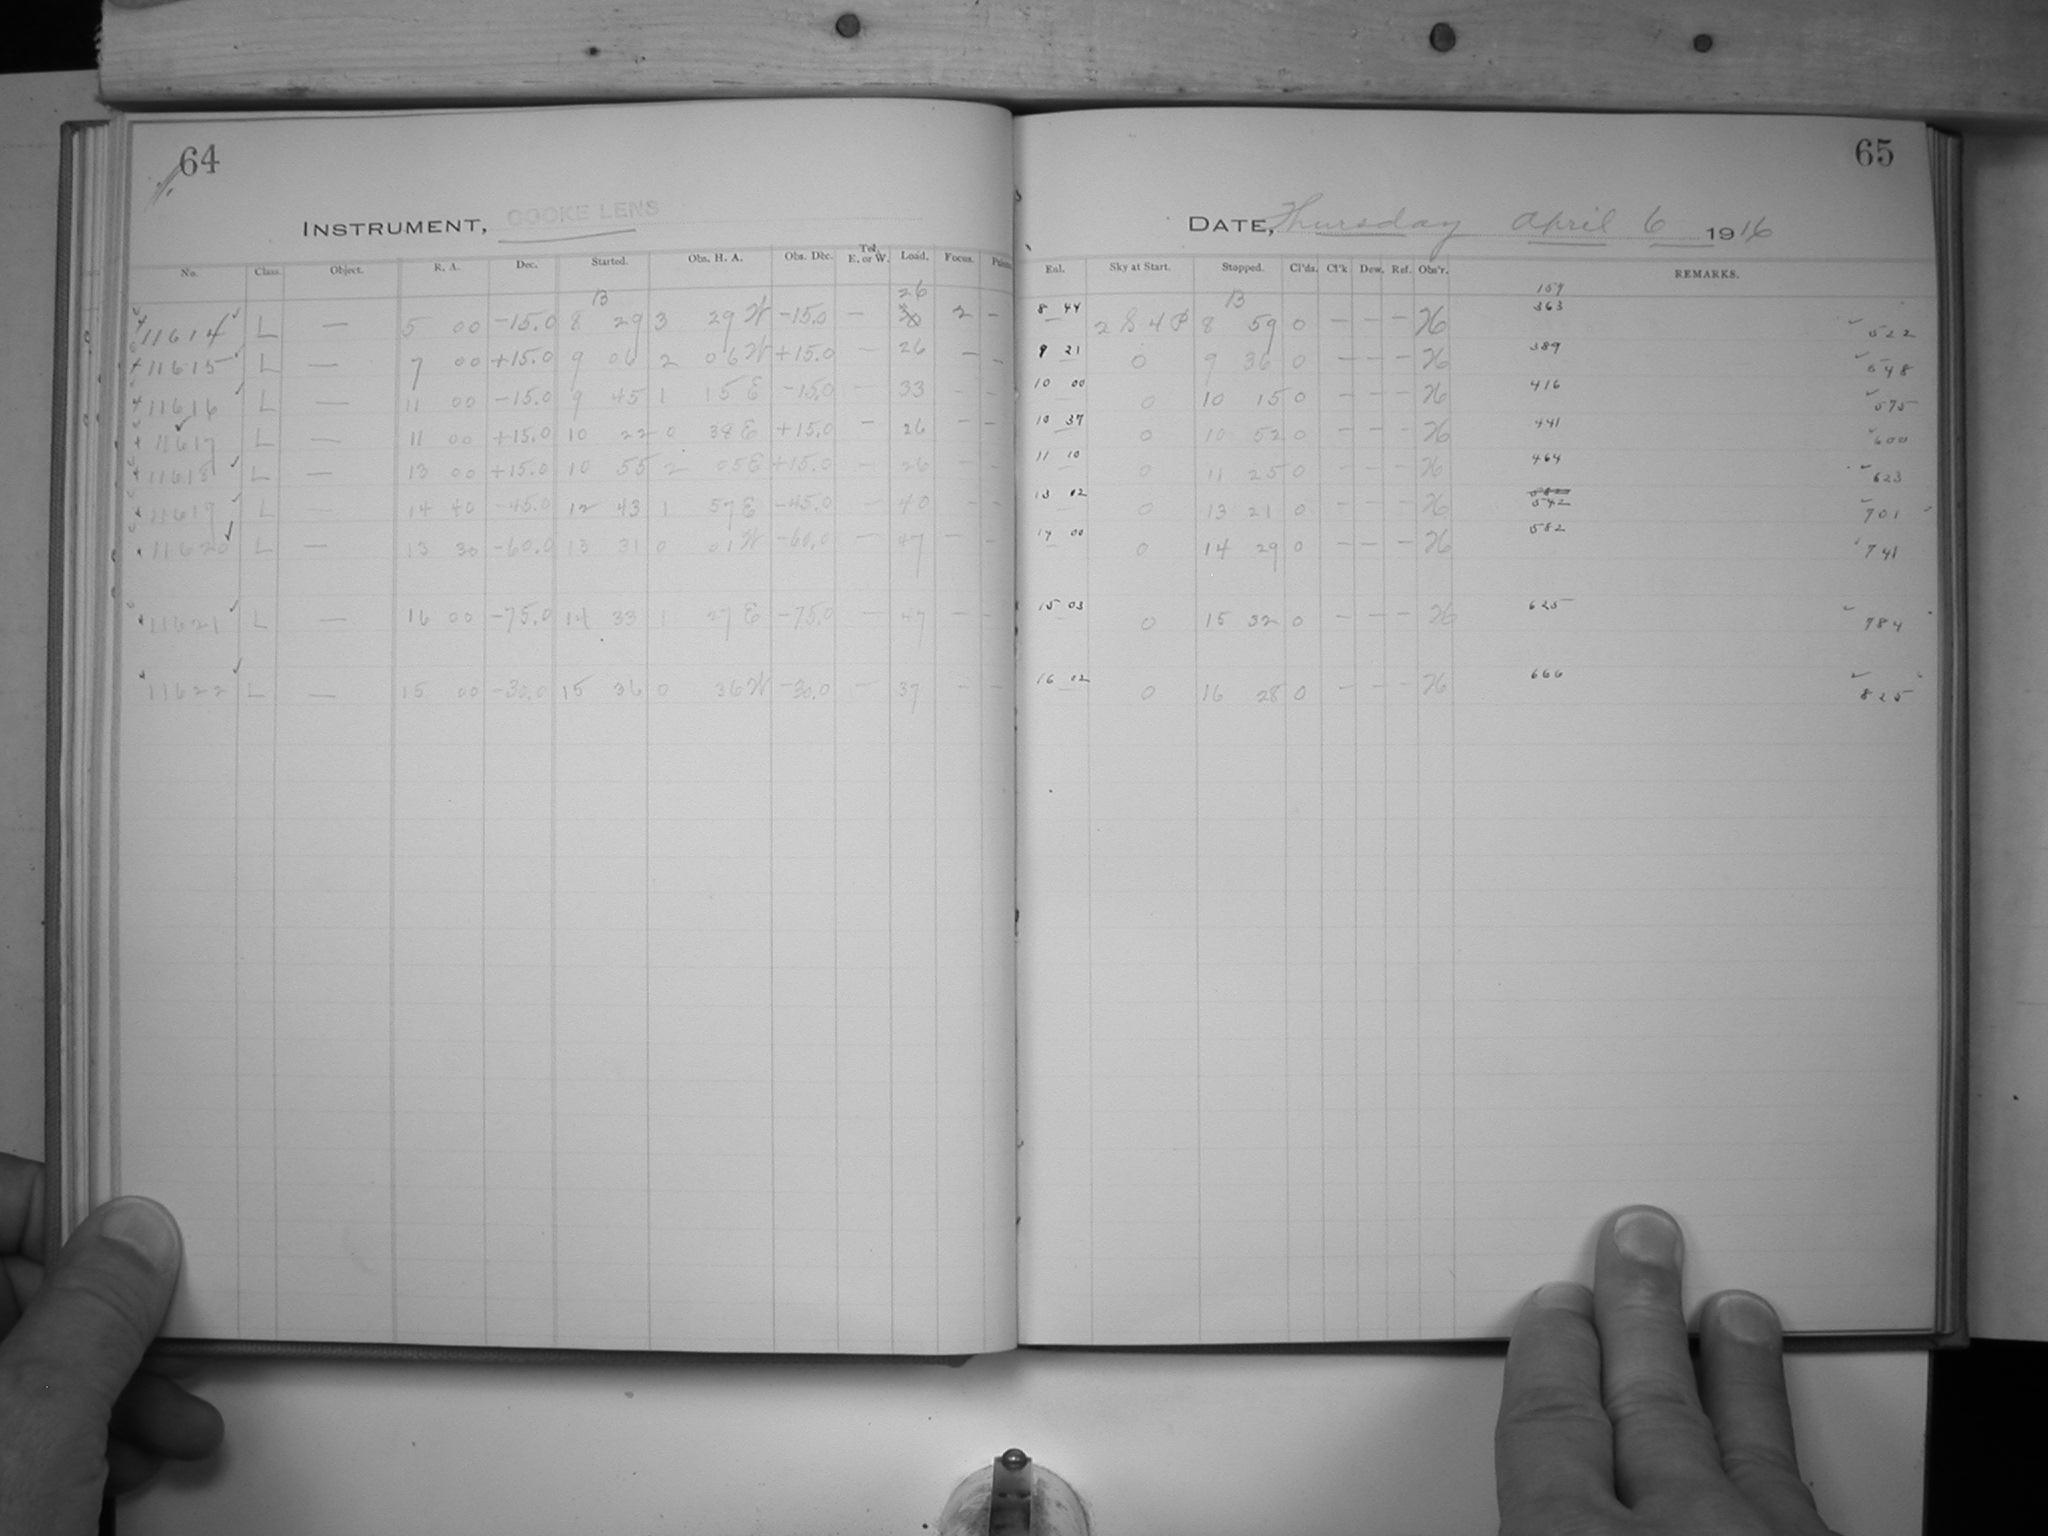 64
INSTRUMENT, COOKE LENS
No. Class. Object. R. A. Dec. Started. Obs. H. A. Obs. Dec. Tel. E. or W. Load. Focus.
B 26
11614 L — 5 00 -15.0 8 29 3 29 W -15.0 — 2 -
11615 L — 7 00 +15.0 9 06 2 06 W +15.0 — 26 - -
11616 L — 11 00 -15.0 9 45 1 15 E -15.0 — 33 - -
11617 L — 11 00 +15.0 10 22 0 38 E +15.0 — 26 - -
11618 L — 13 00 +15.0 10 55 2 05 E +15.0 — 26 - -
11619 L — 14 40 -45.0 12 43 1 57 E -45.0 — 40 - -
11620 L — 13 30 -60.0 13 31 0 01 W -60.0 — 47 - -
11621 L — 16 00 -75.0 14 33 1 27 E -75.0 — 47 - -
11622 L — 15 00 -30.0 15 36 0 36 W -30.0 — 37 - -
65
DATE, Thursday April 6 1916
Sky at Start. Stopped. Cl'ds. Cl'k Dew. Ref. Obs'r. REMARKS.
B 159
8 44 2 S 4 P 8 59 0 — — — H 363 522
9 21 0 9 36 0 — — — H 389 548
10 00 0 10 15 0 — — — H 416 575
10 37 0 10 52 0 — — — H 441 600
11 10 0 11 25 0 — — — H 464 623
13 02 0 13 21 0 — — — H 542 701
14 00 0 14 29 0 — — — H 582 741
15 03 0 15 32 0 — — — H 625 784
16 02 0 16 28 0 — — — H 666 825